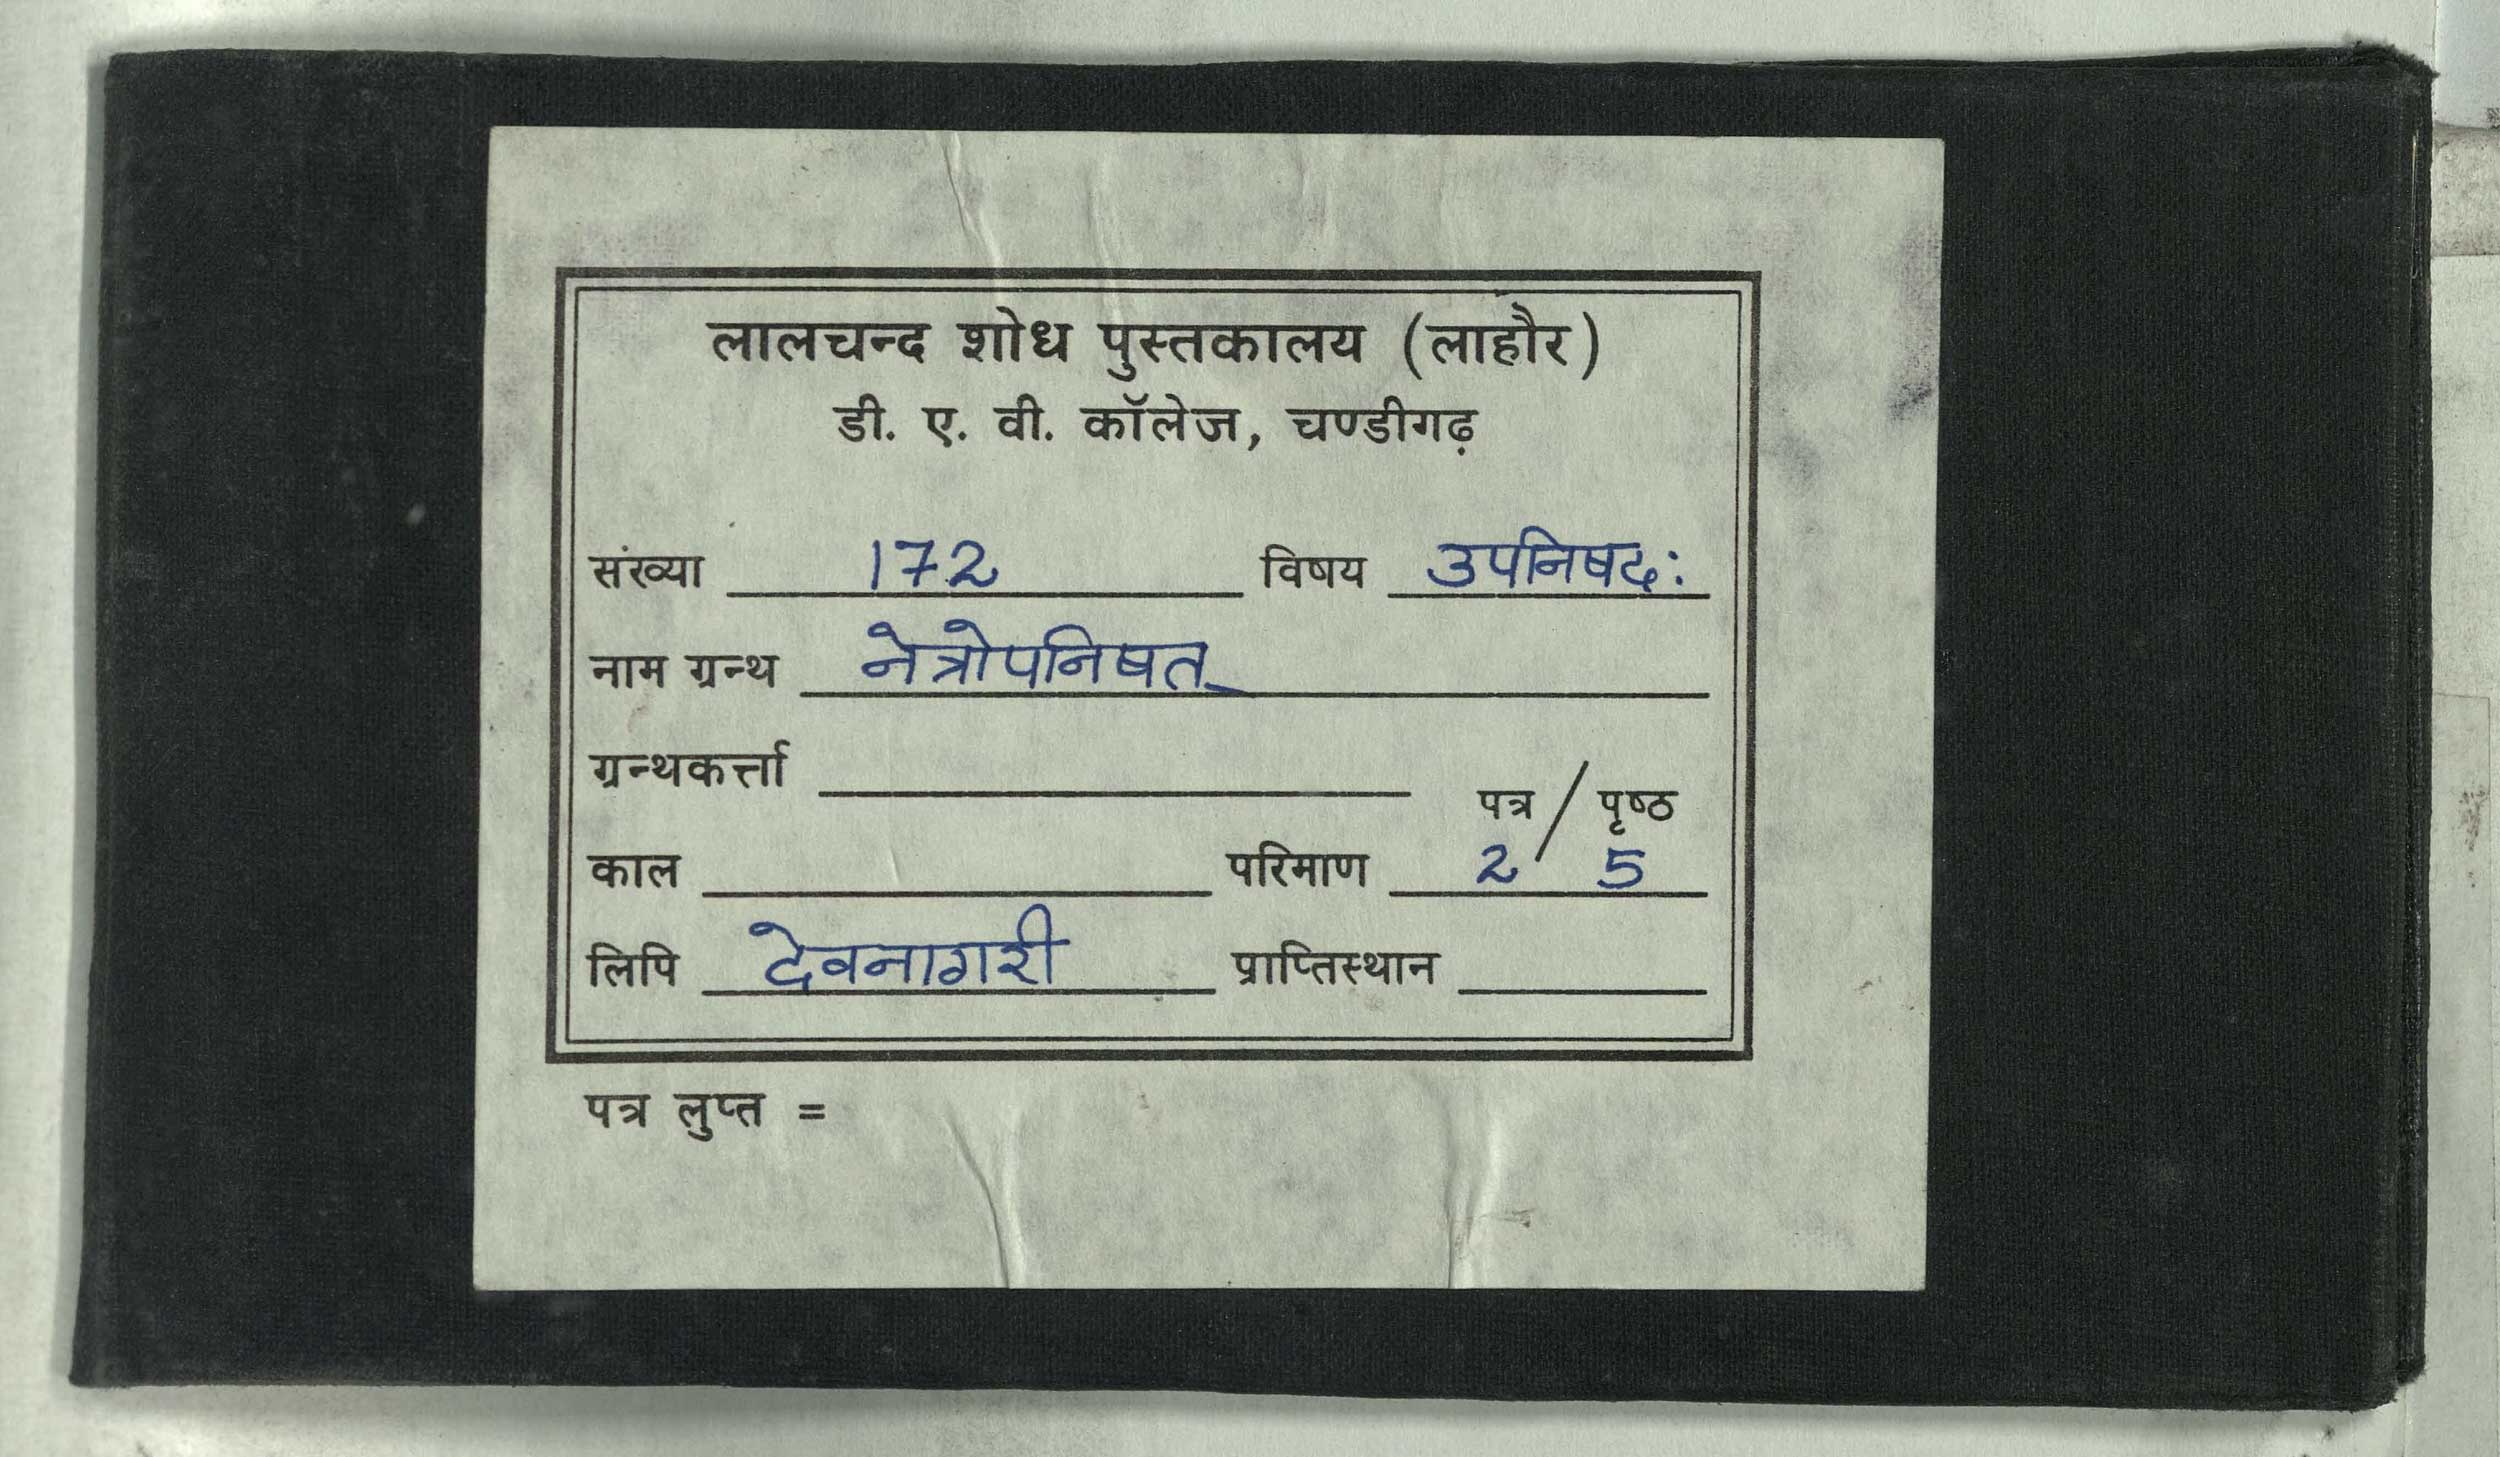 लालचन्द शोध पुस्तकालय (लाहौर)
डी. ए. वी. कॉलेज, चण्डीगढ़
संख्या 172 विषय उपनिषद:
नाम ग्रन्थ नेत्रोपनिषत्
ग्रन्थकर्त्ता
पत्र / पृष्ठ
काल परिमाण 2 / 5
लिपि देवनागरी प्राप्तिस्थान
पत्र लुप्त =